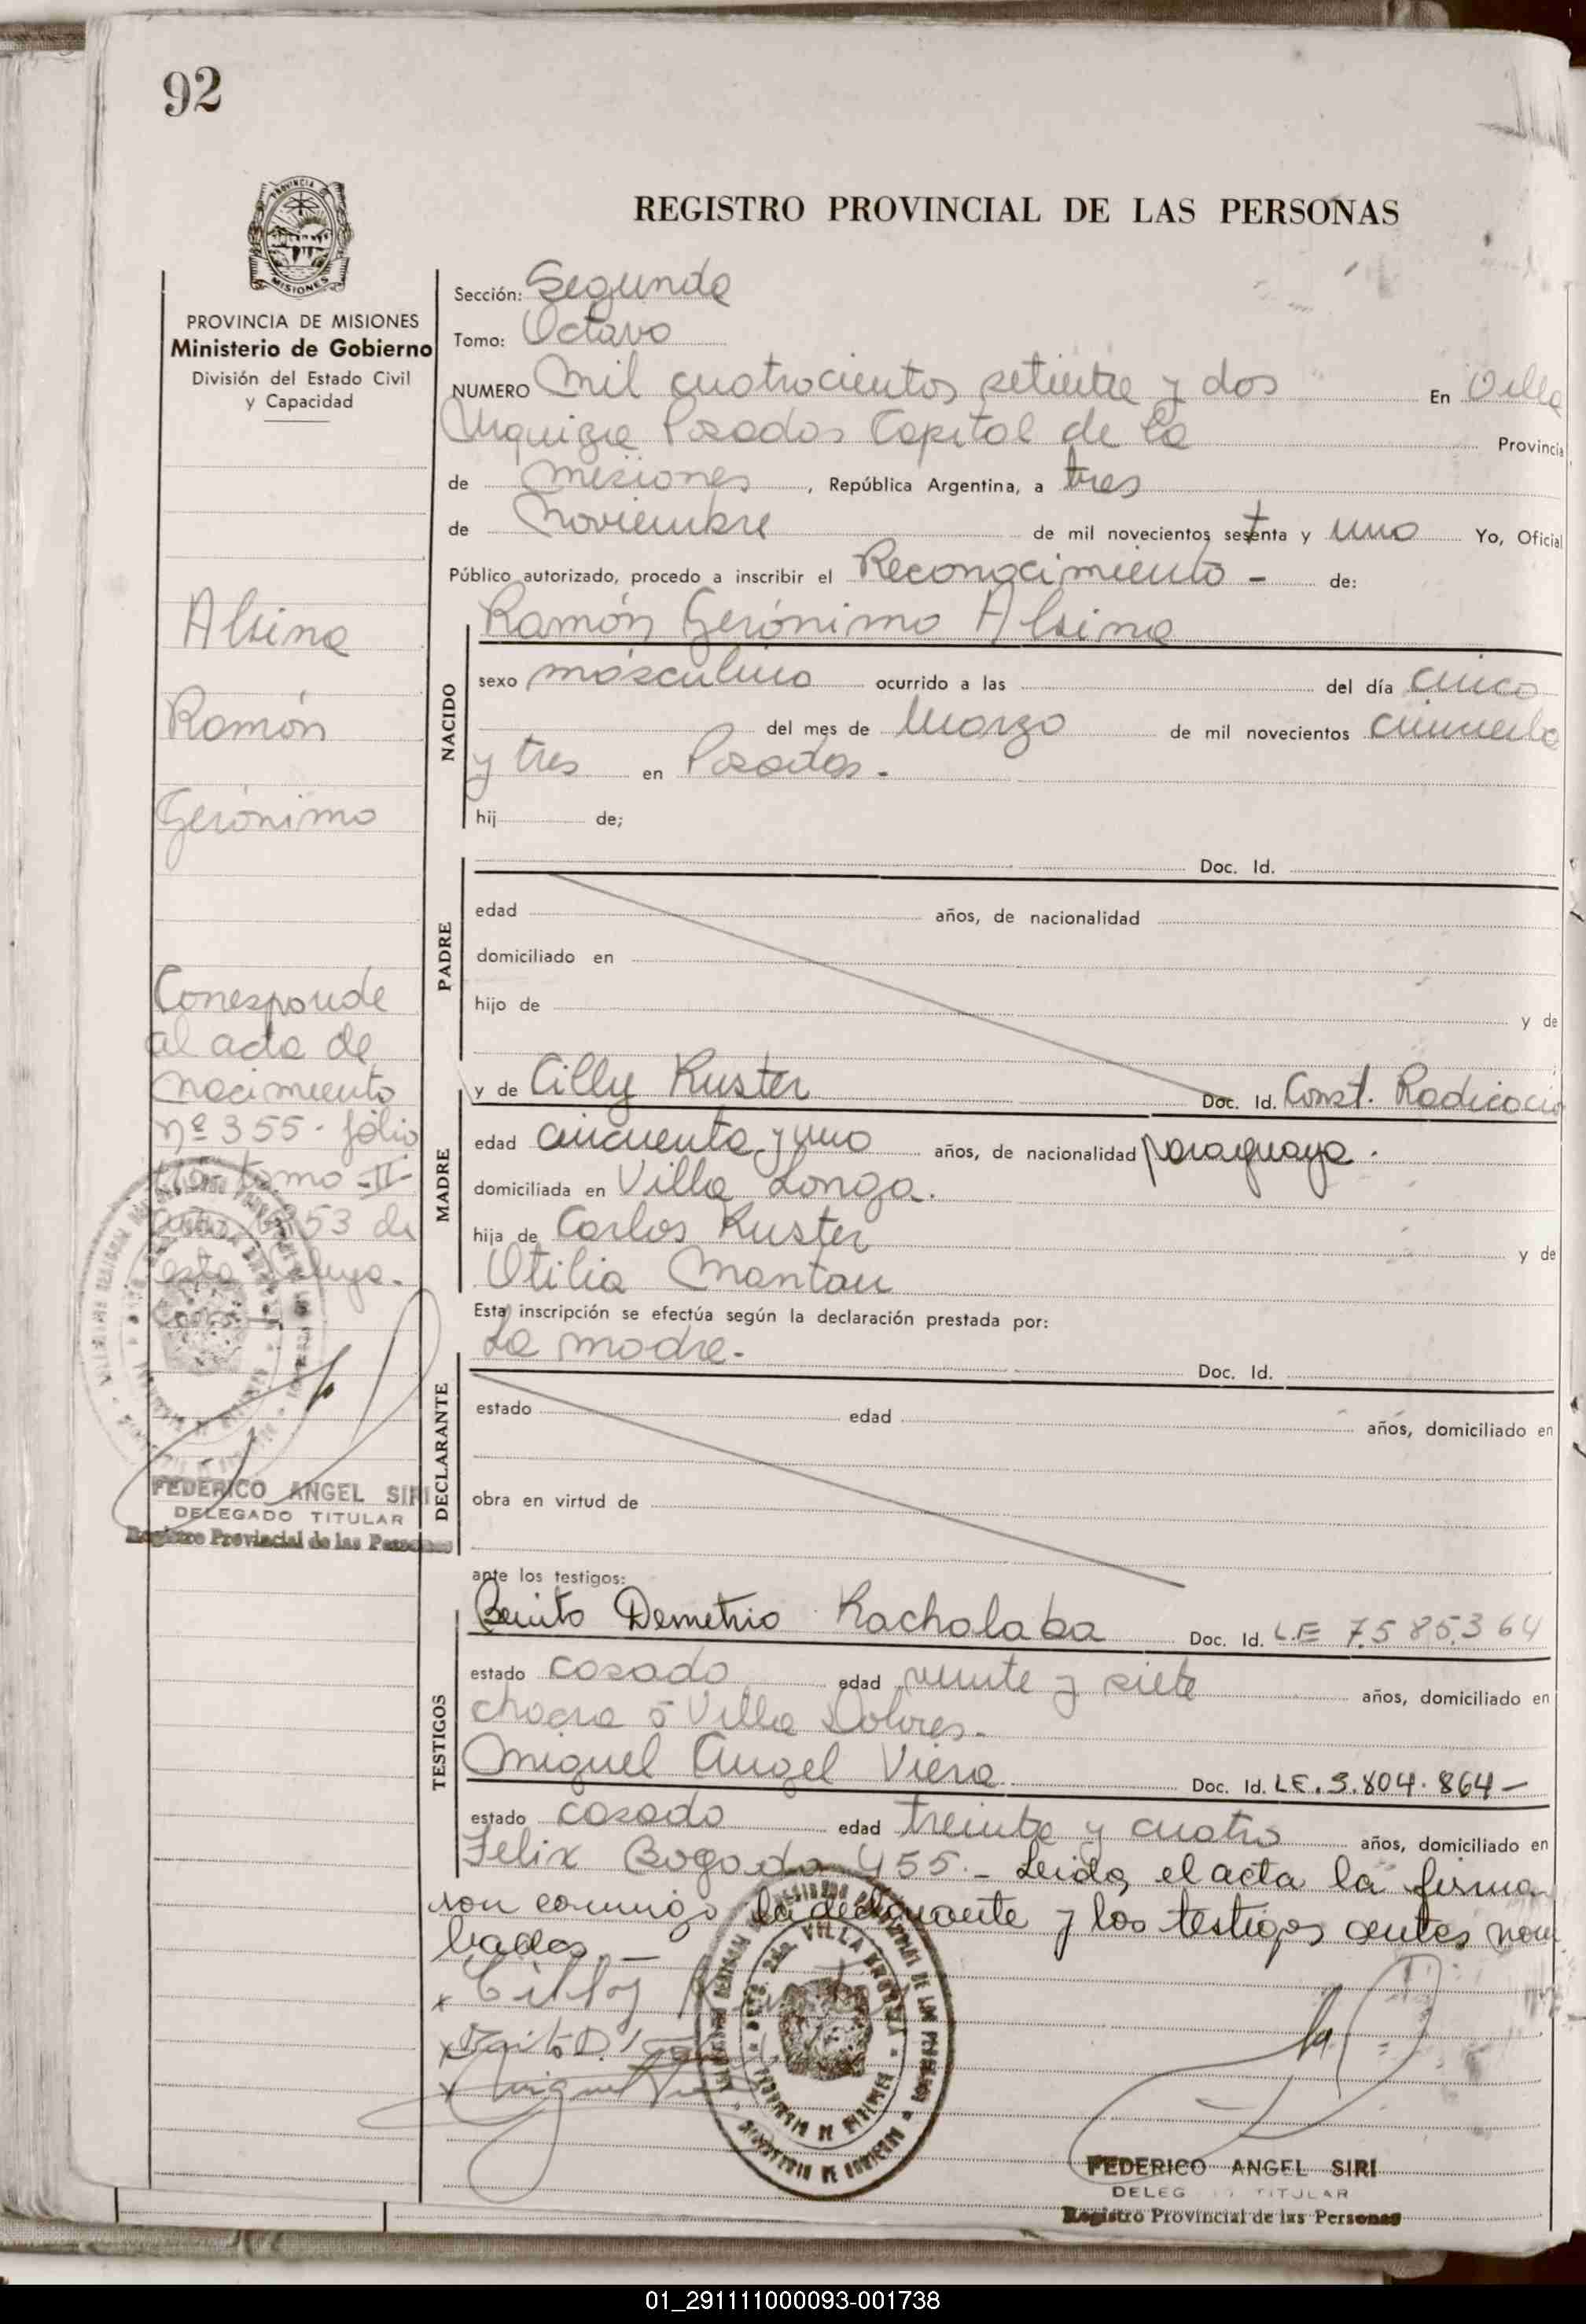 92
PROVINCIA DE MISIONES
Ministerio de Gobierno
División del Estado Civil
y Capacidad
Alsina
Ramón
Gerónimo
Corresponde
al acta de
nacimiento
nº 355 - folio
tomo -II-
año 1953 de
esta
FEDERICO ANGEL SIRI
DELEGADO TITULAR
Registro Provincial de las Personas
REGISTRO PROVINCIAL DE LAS PERSONAS
Sección: Segunda
Tomo: Octavo
NUMERO Mil cuatrocientos setenta y dos En Villa
Urquiza Posadas Capital de la Provincia
de Misiones, República Argentina, a tres
de Noviembre de mil novecientos setenta y uno Yo, Oficial
Público autorizado, procedo a inscribir el Reconocimiento - de:
Ramón Gerónimo Alsina
NACIDO
sexo masculino ocurrido a las del día cinco
del mes de Marzo de mil novecientos cincuenta
y tres en Posadas.
hij de;
PADRE
Doc. Id.
edad años, de nacionalidad
domiciliado en
hijo de y de
MADRE
y de Cilly Kuster Doc. Id. Const. Radicacio
edad cincuenta y uno años, de nacionalidad paraguaya.
domiciliada en Villa Longa.
hija de Carlos Kuster y de
Otilia Mantau
Esta inscripción se efectúa según la declaración prestada por:
DECLARANTE
La madre. Doc. Id.
estado edad años, domiciliado en
obra en virtud de
ante los testigos:
TESTIGOS
Benito Demetrio Kachalaba Doc. Id. L.E 7.585.364
estado casado edad veinte y siete años, domiciliado en
chacra 5 Villa Dolores.
Miguel Angel Viera Doc. Id. LE. 3.804.864 -
estado casado edad treinta y cuatro años, domiciliado en
Felix Bogado 455.- Leida el acta la firma
ron conmigo la declarante y los testigos antes nom
brados. -
x Cilly Kuster
x Benito D.
x Miguel
VILLA URQUIZA
PROVINCIA DE MISIONES
MINISTERIO DE GOBIERNO
FEDERICO ANGEL SIRI
DELEG TITULAR
Registro Provincial de las Personas
01_291111000093-001738